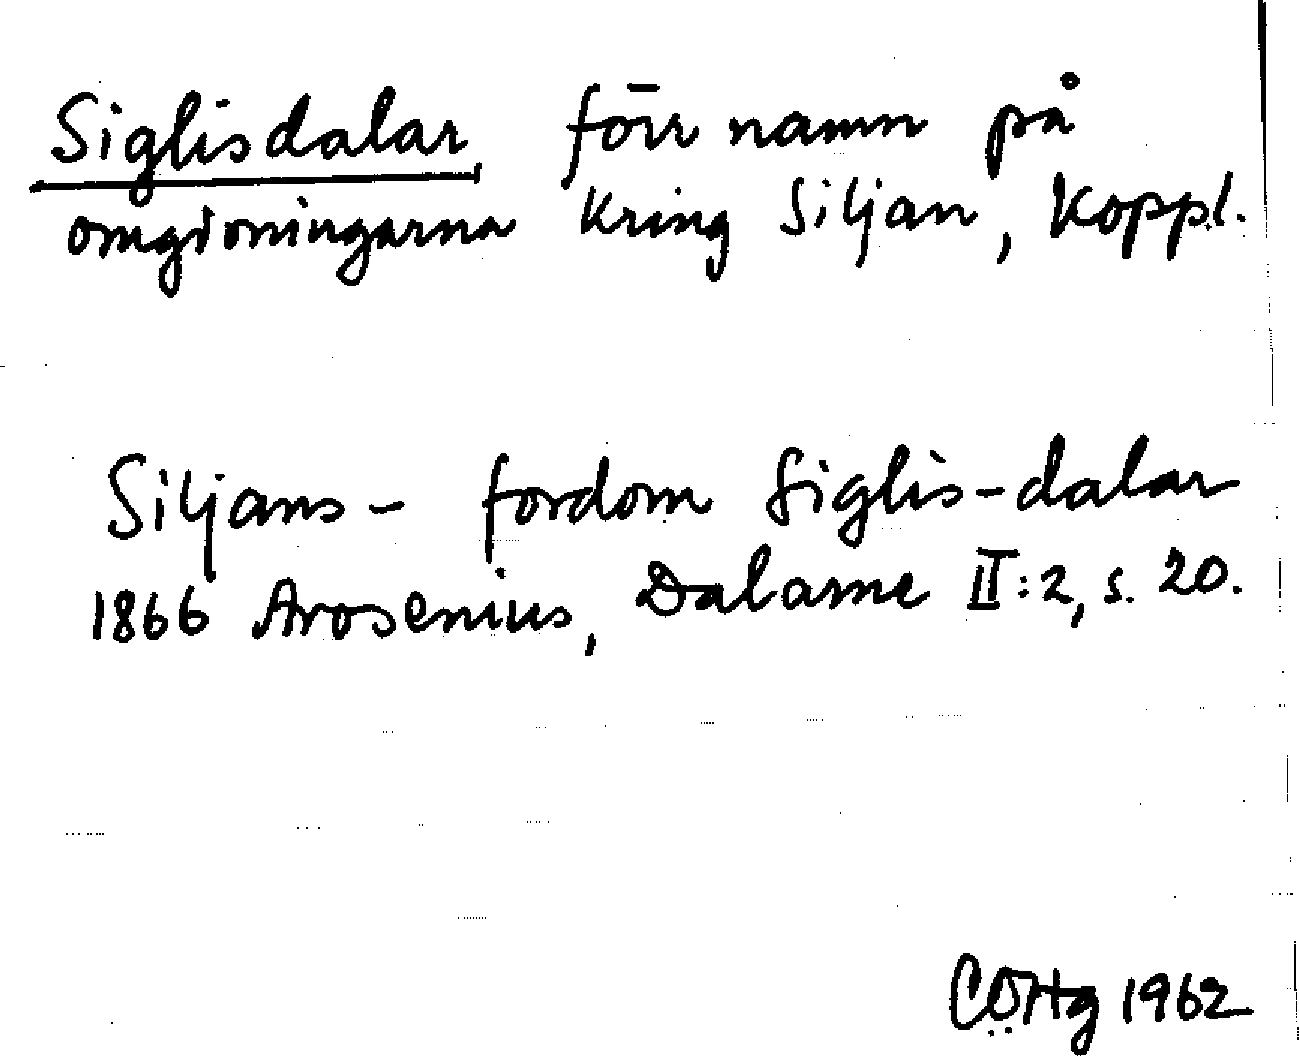 Siglisdalar, förr namn på
omgivningarna kring Siljan, Koppl.
Siljans- fordom Siglis-dalar
1866 Arosenius, Dalarne II:2, s. 20.
1962